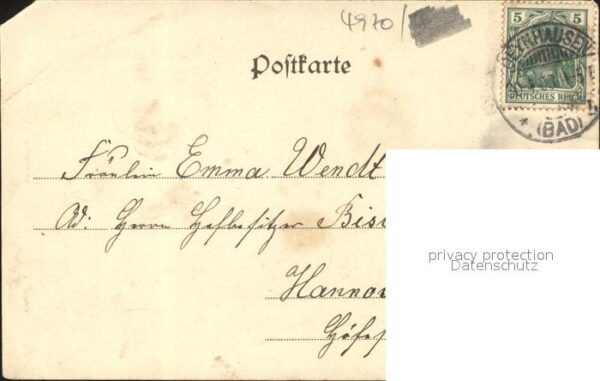 4970/
Postkarte
5 5
DEUTSCHES REICH
OEYNHAUSEN
(BAD)
Fräulein Emma Wendt
Ad. Herrn Hofbesitzer
Hanno
privacy protection
Datenschutz